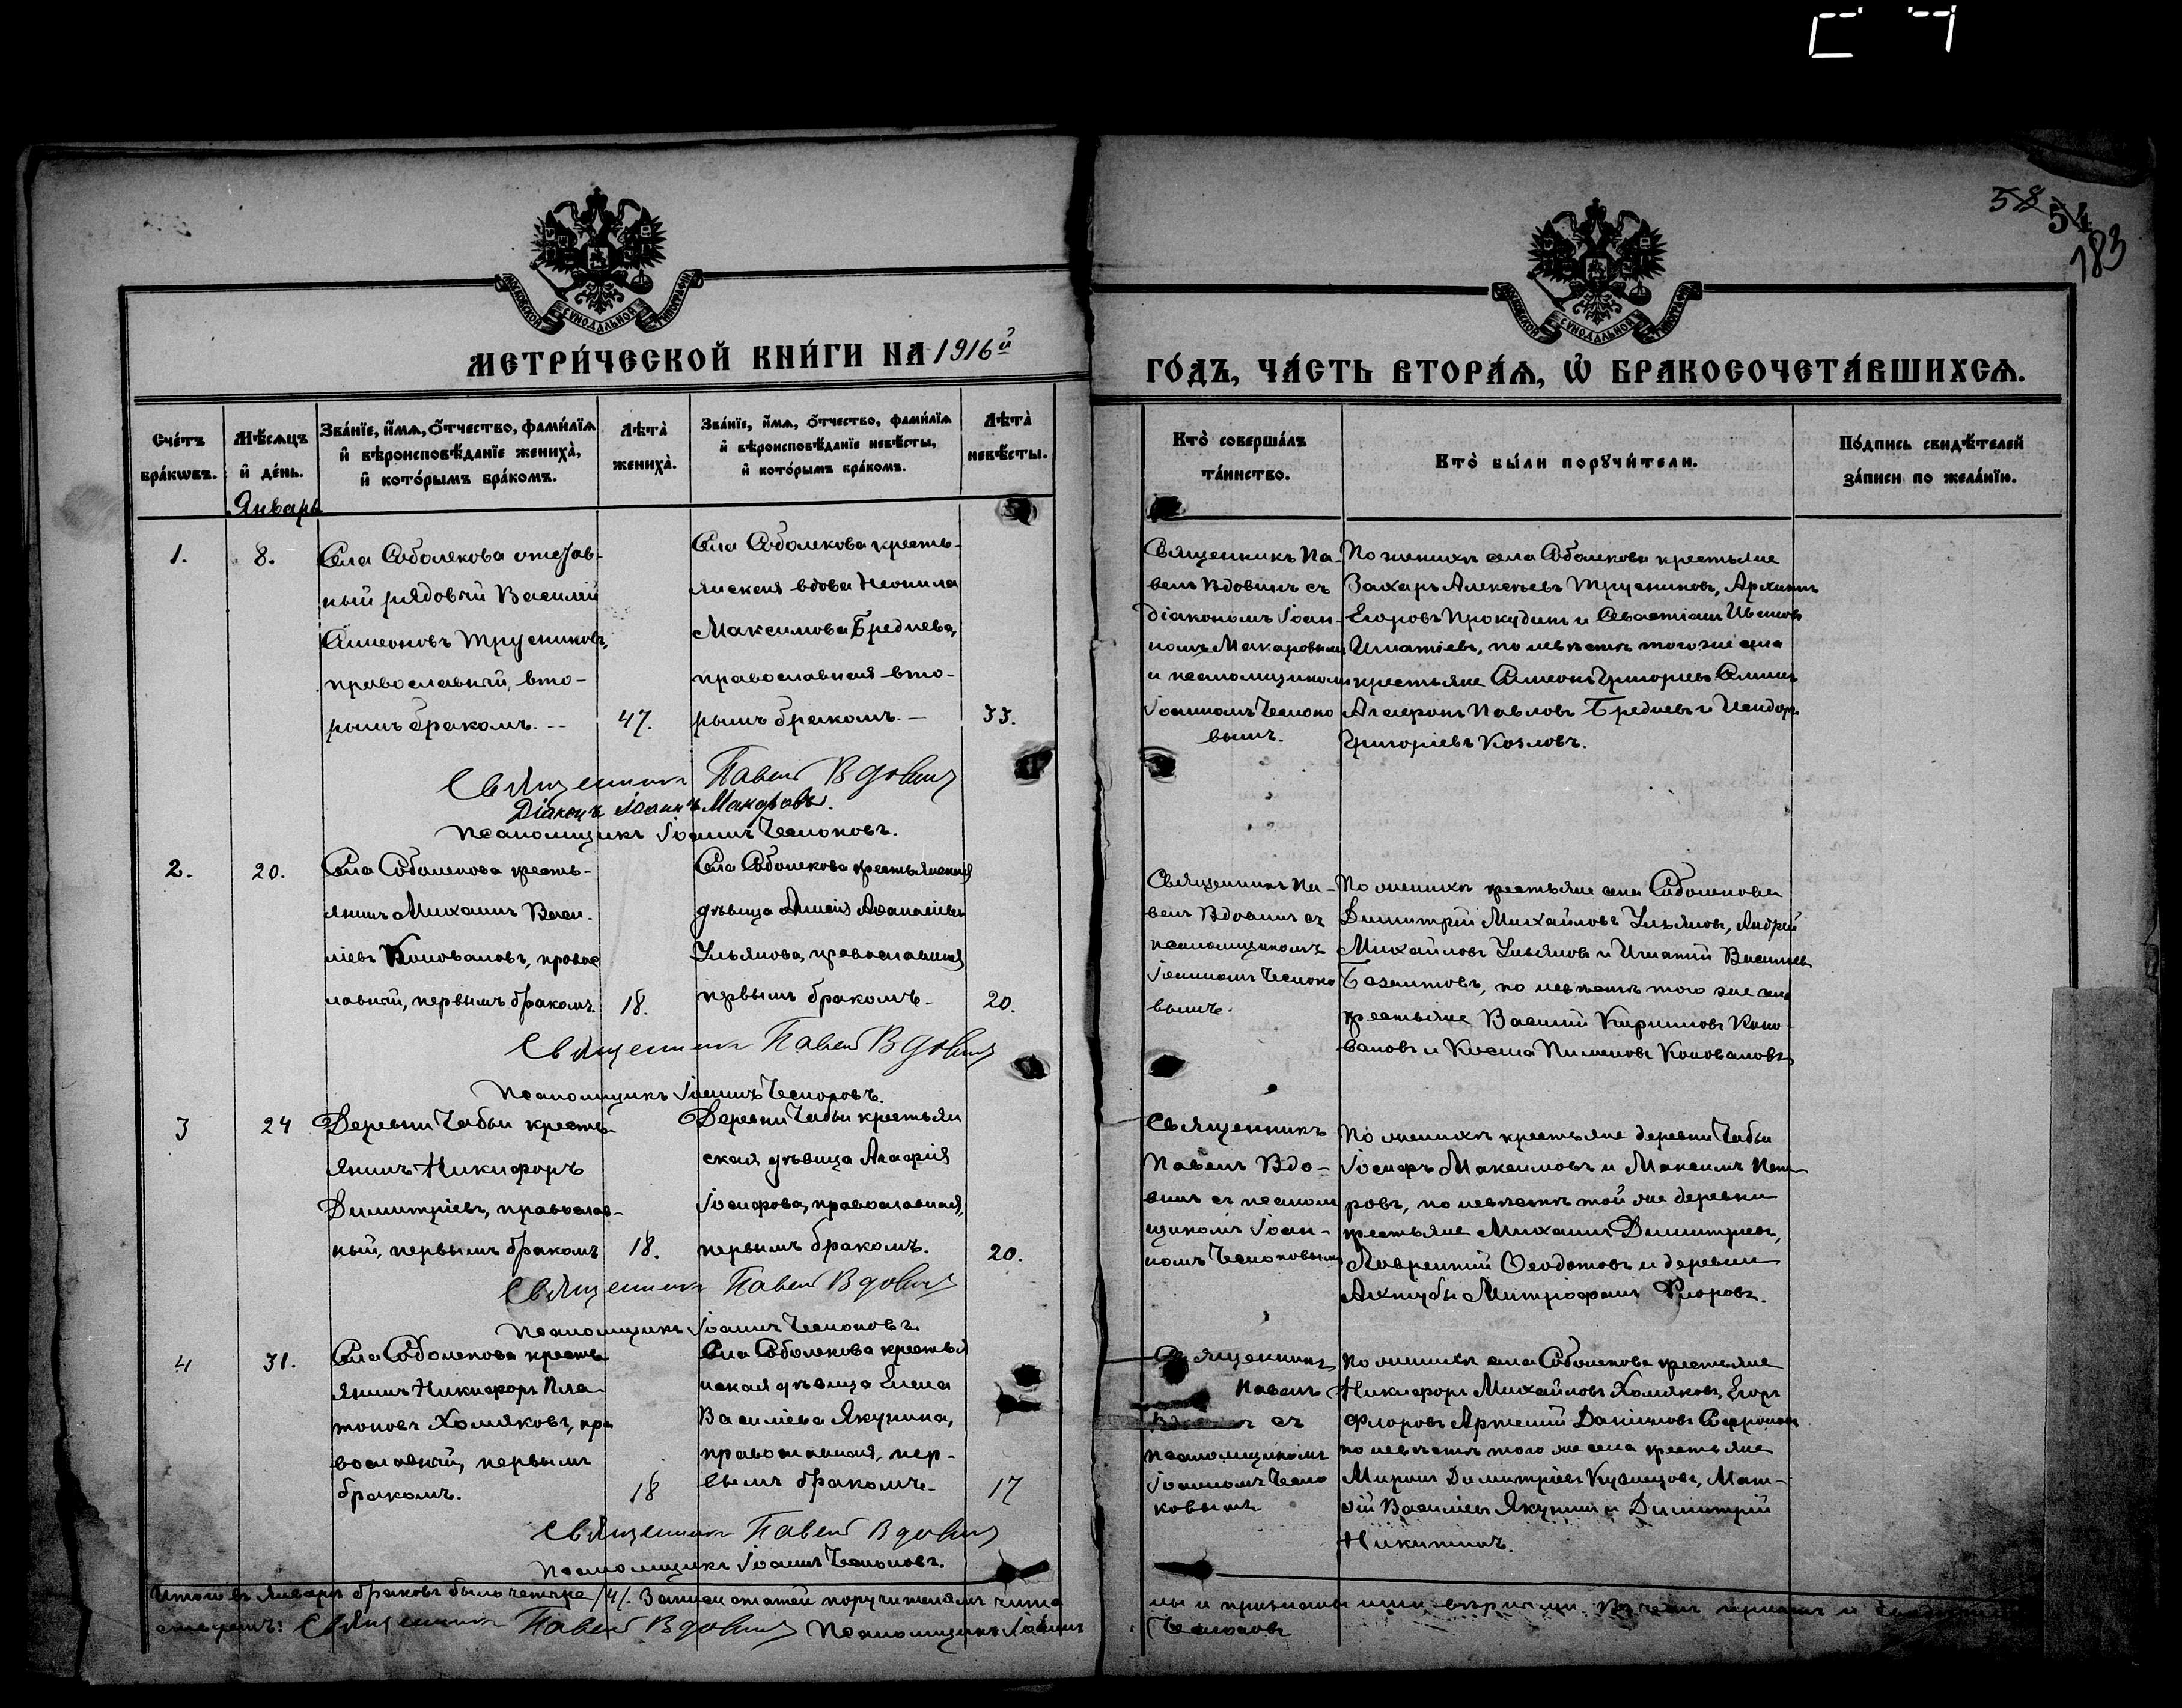 58 54
183
МОСКОВСКОЙ СѴНОДАЛЬНОЙ ТИПОГРАФІИ
МОСКОВСКОЙ СѴНОДАЛЬНОЙ ТИПОГРАФІИ
МЕТРИ́ЧЕСКОЙ КНИ́ГИ НА 1916й
ГО́ДЪ, ЧА́СТЬ ВТОРА́Ѧ, Ѡ҆ БРАКОСОЧЕТА́ВШИХСѦ.
Сче́тъ
бра́кѡвъ.
Мѣ́сѧцъ
и҆ де́нь.
Зва́нїе, и҆́мѧ, ѻ҆́тчество, фами́лїѧ
и҆ вѣроисповѣ́данїе жениха̀,
и҆ кото́рымъ бра́комъ.
Лѣта̀
жениха̀.
Зва́нїе, и҆́мѧ, ѻ҆́тчество, фами́лїѧ
и҆ вѣроисповѣ́данїе невѣ́сты,
и҆ кото́рымъ бра́комъ.
Лѣта̀
невѣ́сты.
Кто̀ соверша́лъ
та́инство.
Кто̀ бы́ли порꙋчи́тели.
По́дпись свидѣ́телей
за́писи по жела́нїю.
Январь
1.
8.
Села Соболекова отстав-
ный рядовой Василій
Симеоновъ Трусниковъ,
православный, вто-
рымъ бракомъ. --
47.
Села Соболекова кресть-
янская вдова Неонила
Максимова Бреднева,
православная вто-
рымъ бракомъ. -
33.
Священникъ Па-
велъ Вдовинъ съ
діакономъ Іоан-
номъ Макаровымъ
и псаломщикомъ
Іоанномъ Челноко
вымъ.
По женихѣ села Соболекова крестьяне
Захаръ Алексѣевъ Трусниковъ, Архипъ
Егоровъ Прокудинъ и Севастіанъ Ивановъ
Игнатіевъ, по невѣстѣ того же села
крестьяне Симеонъ Григорьевъ
Агафонъ Павловъ Бредневъ и Исидоръ
Григоріевъ Козловъ.
Священникъ Павелъ Вдовинъ
Діаконъ Іоаннъ Макаровъ.
Псаломщикъ Іоаннъ Челноковъ.
2.
20.
Села Соболекова кресть-
янинъ Михаилъ Васи-
ліевъ Коноваловъ, правос
лавный, первымъ бракомъ.
18.
Села Соболекова крестьянская
дѣвица Анисія Аѳанасіева
Ульянова, православная
первымъ бракомъ.
20.
Священникъ Па-
велъ Вдовинъ съ
псаломщикомъ
Іоанномъ Челноко
вымъ.
По женихѣ крестьяне села Соболекова
Димитрій Михайловъ Ульяновъ, Андрей
Михайловъ Ульяновъ и Игнатій Василіевъ
по невѣстѣ того же села
крестьяне Василій Кирилловъ Коно-
валовъ и Косма Пименовъ Коноваловъ
Священникъ Павелъ Вдовинъ
Псаломщикъ Іоаннъ Челноковъ.
3
24
Деревни Чабьи кресть-
янинъ Никифоръ
Димитріевъ, православ-
ный, первымъ бракомъ
18.
Деревни Чабьи крестьян
ская дѣвица Агафія
Іосифова, православная,
первымъ бракомъ.
20.
Священникъ
Павелъ Вдо-
винъ съ псалом
щикомъ Іоан-
номъ Челноковымъ
По женихѣ крестьяне деревни Чабьи
Іосифъ Максимовъ и Максимъ Пет-
ровъ, по невѣстѣ той же деревни
крестьяне Михаилъ Димитріевъ,
Лаврентій Ѳеодотовъ и деревни
Ахтубы Митрофанъ Флоровъ.
Священникъ Павелъ Вдовинъ
Псаломщикъ Іоаннъ Челноковъ.
4
31.
Села Соболекова кресть
янинъ Никифоръ Пла-
тоновъ Хомяковъ, пра
вославный, первымъ
бракомъ.
18
Села Соболекова крестья
нская дѣвица Елена
Василіева Якунина,
православная, пер-
вымъ бракомъ.
17
Священникъ
Павелъ
Вдовинъ съ
псаломщикомъ
Іоанномъ Челно
ковымъ.
По женихѣ села Соболекова крестьяне
Никифоръ Михайловъ Хомяковъ, Егоръ
Флоровъ Артемій Даніиловъ Сафроновъ
по невѣстѣ того же села крестьяне
Миронъ Димитріевъ Кузнецовъ, Мат-
ѳій Василіевъ Якунинъ и Димитрій
Никитинъ.
Священникъ Павелъ Вдовинъ
Псаломщикъ Іоаннъ Челноковъ.
Итого въ январѣ браковъ было четыре /4/. Записи статей поручителямъ чита
ны и признаны ими вѣрными. Въ чемъ
Священникъ Павелъ Вдовинъ Псаломщикъ Іоаннъ
Челноковъ